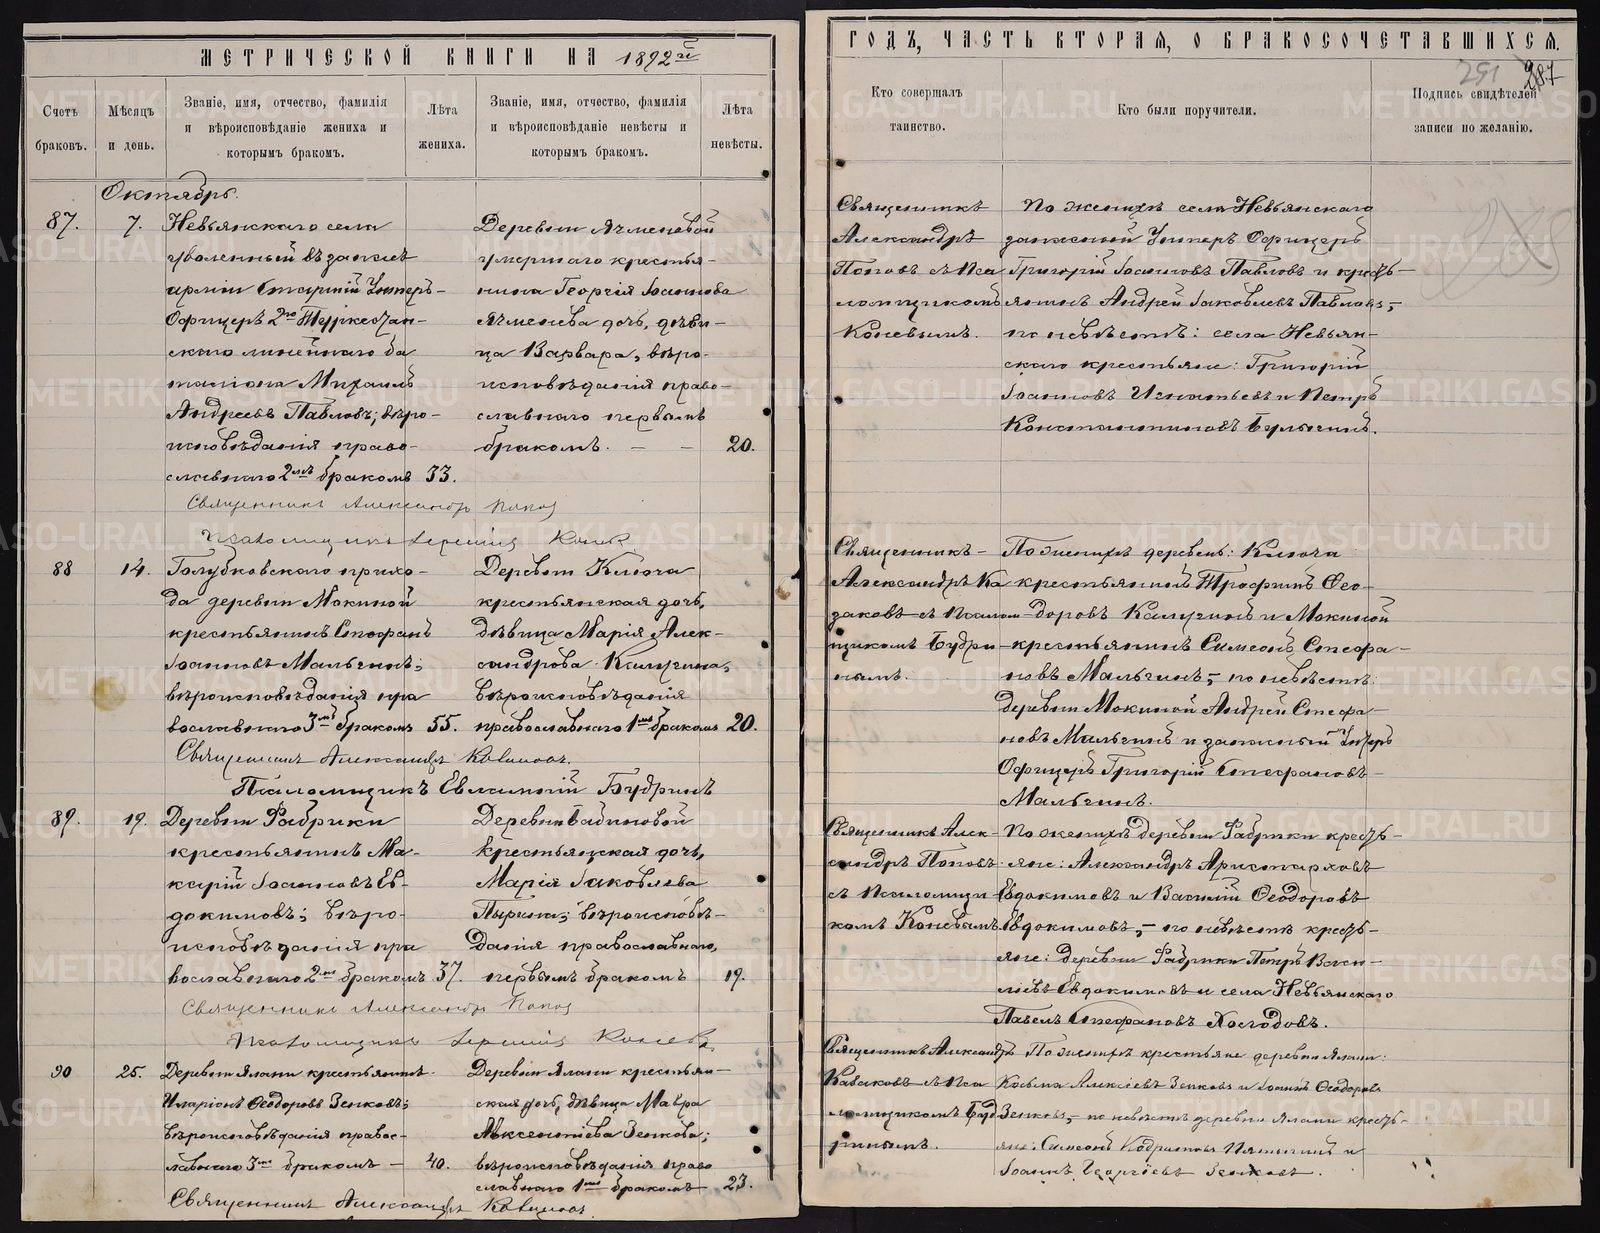 МЕТРИЧЕСКОЙ КНИГИ НА 1892й
Счетъ браковъ.
Мѣсяцъ и день.
Званіе, имя, отчество, фамилія
и вѣроисповѣданіе жениха и
которымъ бракомъ.
Лѣта жениха.
Званіе, имя, отчество, фамилія
и вѣроисповѣданіе невѣсты и
которымъ бракомъ.
Лѣта невѣсты.
Октябрь.
87.
7.
Невьянскаго села
уволенный въ запасъ
арміи Старшій Унтеръ-
Офицеръ 2го Туркестан-
скаго линейнаго ба
таліона Михаилъ
Андреевъ Павловъ; вѣро-
исповѣданія право-
славнаго 2мъ бракомъ
33.
Деревни Ячменевой
умершаго крестья-
нина Георгія Іоаннова
Ячменева дочь, дѣви-
ца Варвара, вѣро-
исповѣданія право-
славнаго первымъ
бракомъ. — —
20.
Священникъ Александръ Попов
Псаломщикъ Коне
88
14.
Голубковскаго прихо-
да деревни Мокиной
крестьянинъ Стефанъ
Іоанновъ Мальгинъ;
вѣроисповѣданія пра
вославнаго 3мъ бракомъ
55.
Деревни Ключа
крестьянская дочь,
дѣвица Марія Алек-
сандрова Калугина,
вѣроисповѣданія
православнаго 1мъ бракомъ
20.
Священникъ Александръ
Псаломщикъ Евлампій Будринъ
89.
19.
Деревни Фабрики
крестьянинъ Ма-
карій Іоанновъ Ев-
докимовъ; вѣро-
исповѣданія пра
вославнаго 2мъ бракомъ
37.
Деревни Бабиновой
крестьянская дочь,
Марія Іаковлева
Пырина; вѣроисповѣ-
данія православнаго,
первымъ бракомъ
19.
Священникъ Александръ Попов
Псаломщикъ Коневъ
90
25.
Деревни Ялани крестьянинъ
Иларіонъ Ѳеодоровъ Зенковъ;
вѣроисповѣданія правос-
лавнаго 3мъ бракомъ —
40.
Деревни Ялани крестьян-
ская дочь, дѣвица Мавра
Авксентіева Зенкова;
вѣроисповѣданія право
славнаго 1мъ бракомъ
23.
Священникъ Александръ
ГОДЪ, ЧАСТЬ ВТОРАЯ, О БРАКОСОЧЕТАВШИХСЯ.
287
Кто совершалъ
таинство.
Кто были поручители.
Подпись свидѣтелей
записи по желанію.
Священникъ
Александръ
Поповъ съ Пса
ломщикомъ
Коневымъ.
По женихѣ села Невьянскаго
запасной Унтеръ Офицеръ
Григорій Іоанновъ Павловъ и кресть-
янинъ Андрей Іаковлевъ Павловъ,-
по невѣстѣ: села Невьян-
скаго крестьяне: Григорій
Іоанновъ Игнатьевъ и Петръ
Константиновъ Булыгинъ.
Священникъ-
Александръ Ка
заковъ съ Псалом-
щикомъ Будри-
нымъ.
По женихѣ деревень: Ключа
крестьянинъ Трофимъ Ѳео-
доровъ Калугинъ и Мокиной
крестьянинъ Симеонъ Стефа-
новъ Мальгинъ,- по невѣстѣ:
деревни Мокиной Андрей Стефа-
новъ Мальгинъ и запасный Унтеръ
Офицеръ Григорій Стефановъ-
Мальгинъ.
Священникъ Алек-
сандръ Поповъ
съ Псаломщи
комъ Коневымъ
По женихѣ деревни Фабрики кресть-
яне: Александръ Аристарховъ
Евдокимовъ и Василій Ѳеодоровъ
Евдокимовъ,- по невѣстѣ кресть-
яне: деревни Фабрики Петръ Васи-
ліевъ Евдокимовъ и села Невьянскаго
Павелъ Стефановъ Холодовъ.
Священникъ Александръ
Казаковъ съ Пса
ломщикомъ Буд
ринымъ.
По женихѣ крестьяне деревни Ялани:
Косьма Алексіевъ Зенковъ и Іоаннъ Ѳеодоровъ
Зенковъ,- по невѣстѣ деревни Ялани кресть-
яне: Симеонъ и
Іоаннъ Георгіевъ Зенковъ.
METRIKI.GASO-URAL.RU